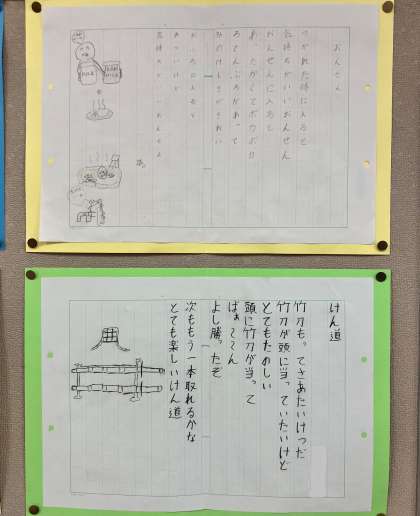 おんせん
つかれた時に入ると
気持ちがいいおんせん
おんせんに入ると
あったかくてポカポカ
ろてんぶろがあって
みのけしきがきれい
おふろに入ると
あついけど
気持ちがいいおんせん
けん道
竹刀も。てさあたいけつだ
竹刀が頭に当っていたいけど
とてもたのしい
頭に竹刀が当って
ばぁ~~~ん
よし勝ったぞ
次ももう一本取れるかな
とても楽しいけん道